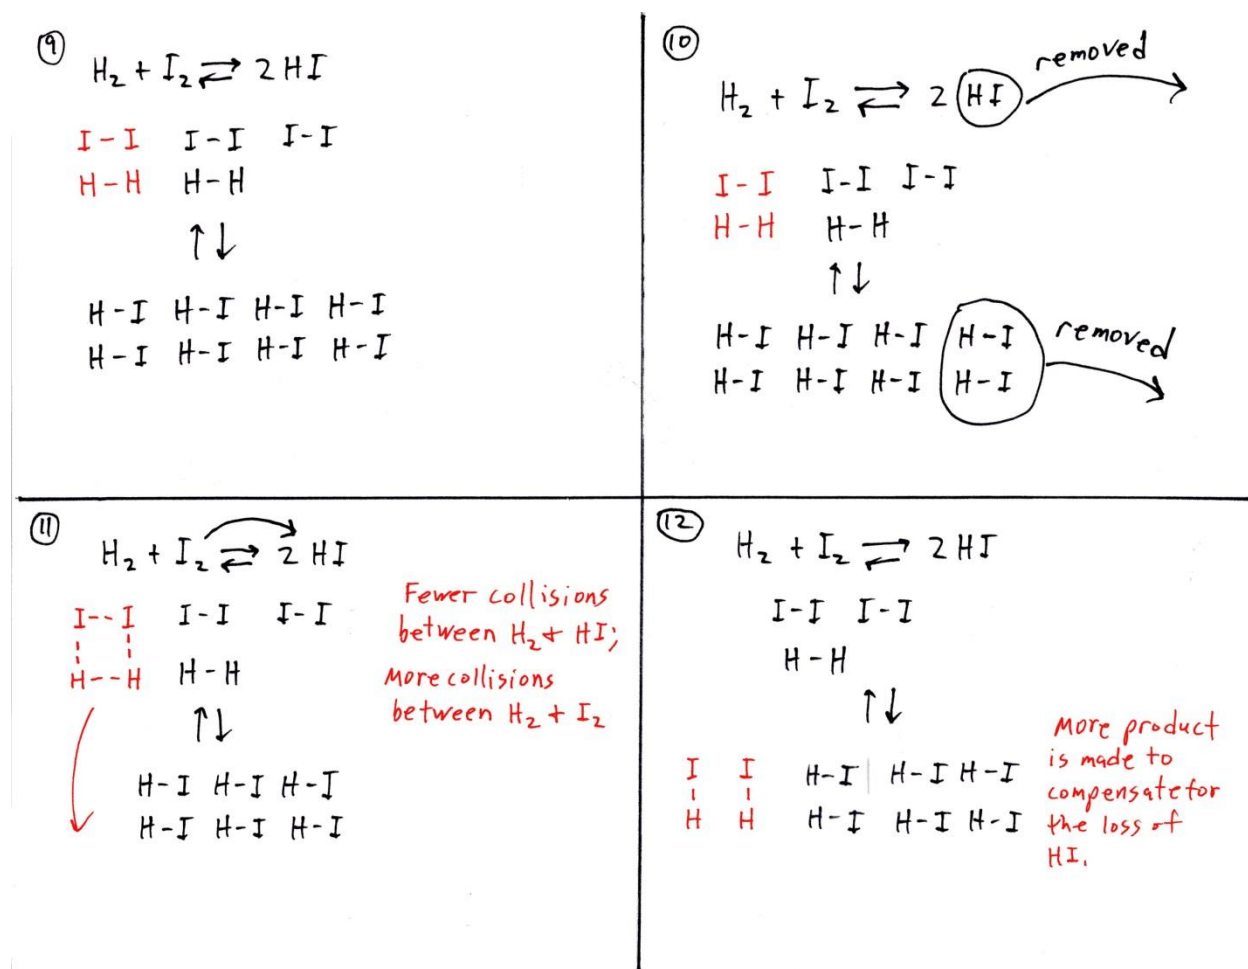 9
H₂ + I₂ ⇄ 2HI
I-I I-I I-I
H-H H-H
↑↓
H-I H-I H-I H-I
H-I H-I H-I H-I
10
H₂ + I₂ ⇄ 2 HI removed
I-I I-I I-I
H-H H-H
↑↓
H-I H-I H-I H-I removed
H-I H-I H-I H-I
11
H₂ + I₂ ⇄ 2 HI
I--I I-I I-I
H--H H-H
↑↓
H-I H-I H-I
H-I H-I H-I
Fewer collisions
between H₂ + HI;
More collisions
between H₂ + I₂
12
H₂ + I₂ ⇄ 2HI
I-I I-I
H-H
↑↓
I I H-I H-I H-I
H H H-I H-I H-I
More product
is made to
compensate for
the loss of
HI.